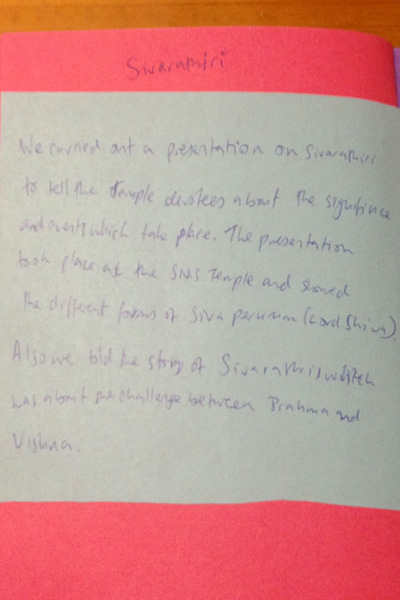 Sivarathiri
We carried out a presentation on Sivarathiri
to tell the Temple devotees about the significance
and events which take place. The presentation
took place at the SNAS Temple and showed
the different forms of Siva peruman (Lord Shiva).
Also we told the story of Sivarathiri which
was about the challenge between Brahma and
Vishnu.